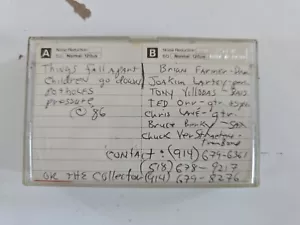 A Noise Reduction B Noise Reduction
Normal 120µs Normal 120µs
Things fall apart
Children go down
potholes
pressure
© 86
Brian Farmer
Joakim Lartey
Tony
TED Orr - gtr
Chris Lane - gtr
Bruce - Sax
Chuck VerStraeten -
Trombone
Contact: (914) 679-6361
(518) 678-9217
OR THE Collector (914) 679-8276